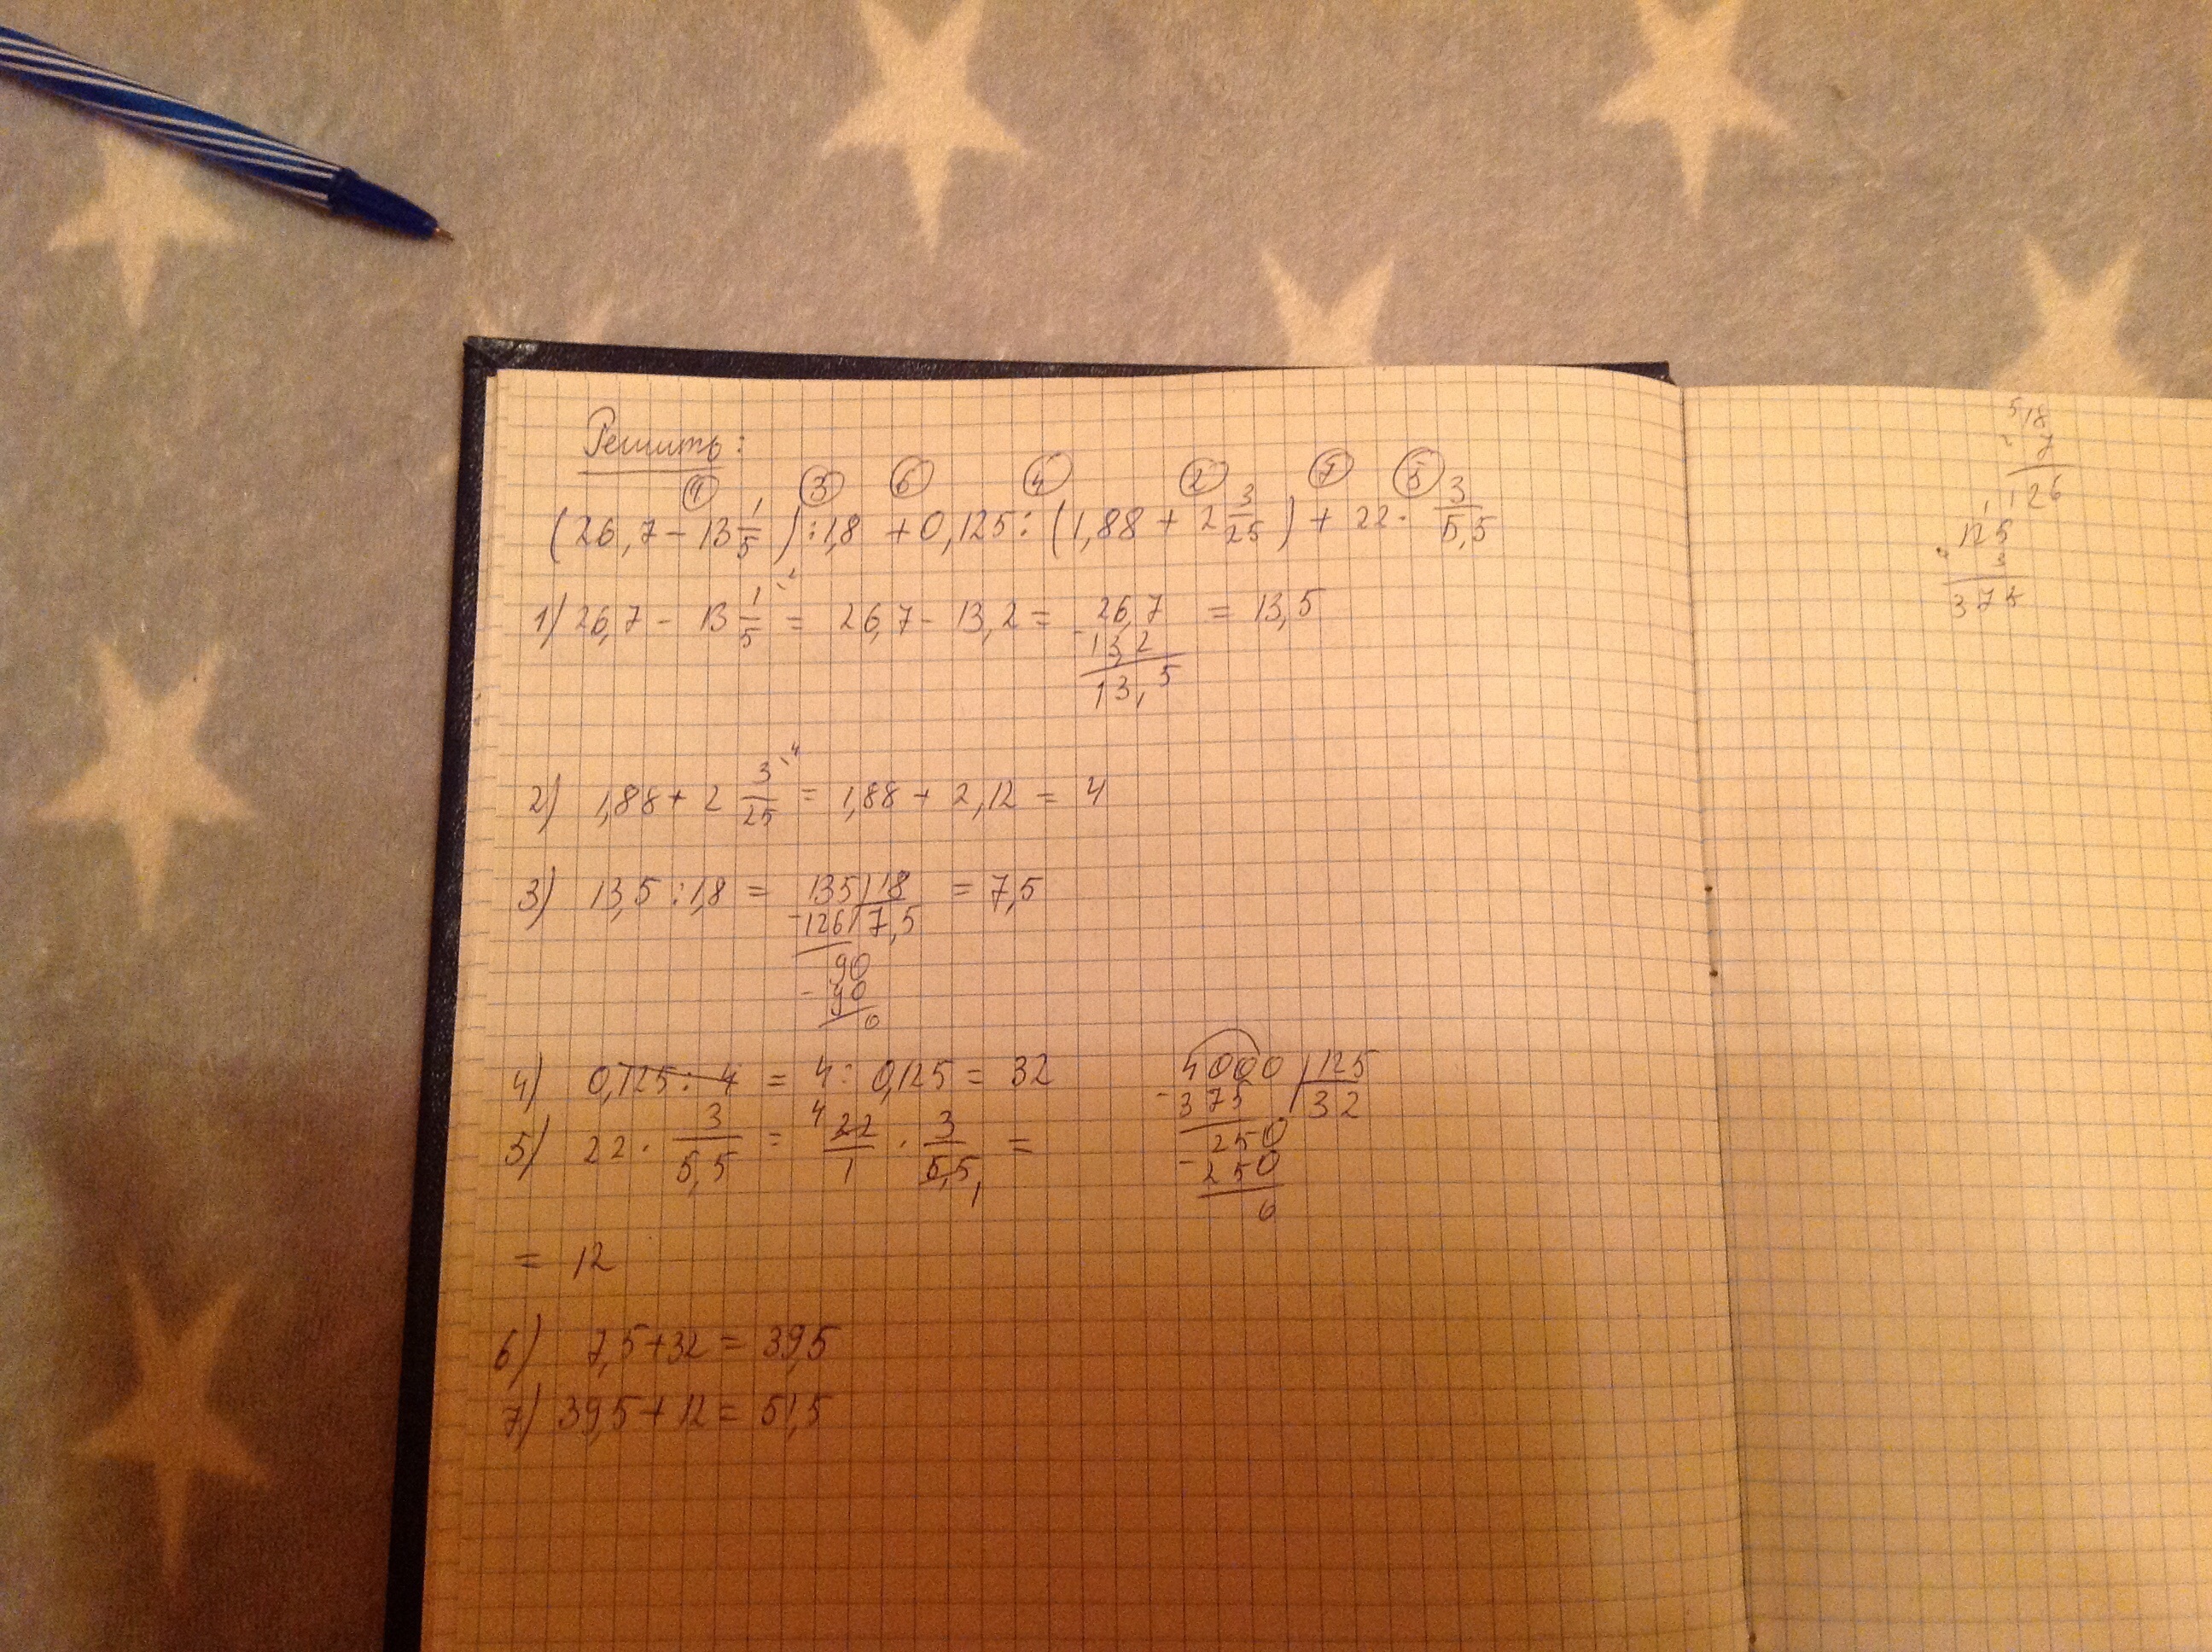 Решить:
1 3 6 4 2 7 5
(26,7 - 13 1/5) : 1,8 + 0,125 : (1,88 + 2 3/25) + 22 · 3/5,5
1) 26,7 - 13 1/5 = 26,7 - 13,2 = 26,7 = 13,5
- 13,2
13,5
2) 1,88 + 2 3/25 \4 = 1,88 + 2,12 = 4
3) 13,5 : 1,8 = 135 | 18 = 7,5
- 126 | 7,5
90
- 90
0
4) 0,125 : 4 = 4 : 0,125 = 32
5) 22 · 3/5,5 = 4 22/1 · 3/5,5 1 =
= 12
4000 | 125
- 375 | 32
250
- 250
0
6) 7,5 + 32 = 39,5
7) 39,5 + 12 = 51,5
5
18
7
126
1
125
3
375